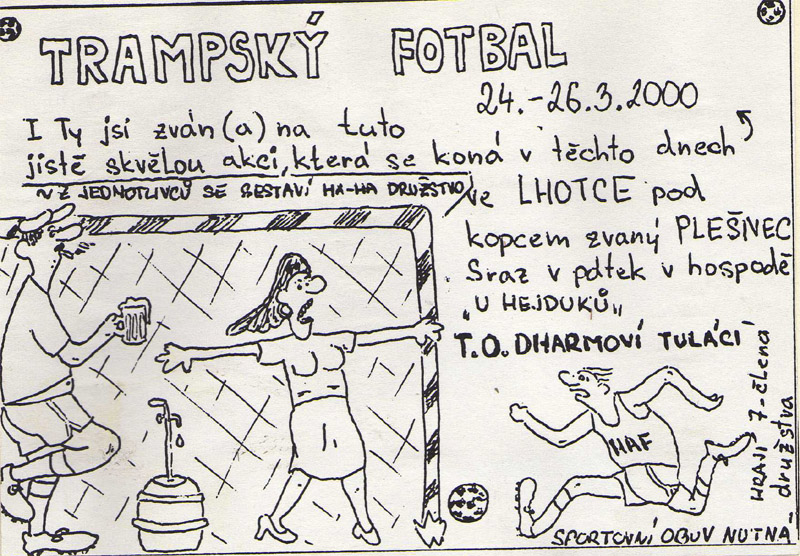 TRAMPSKÝ FOTBAL
24.-26.3.2000
I Ty jsi zván(a) na tuto
jistě skvělou akci, která se koná v těchto dnech
~ Z JEDNOTLIVCŮ SE SESTAVÍ HA-HA DRUŽSTVO
ve LHOTCE pod
kopcem zvaný PLEŠIVEC
Sraz v pátek v hospodě
„U HEJDUKŮ„
T.O. DHARMOVÍ TULÁCI
HAF
HRAJÍ 7-člená
družstva
SPORTOVNÍ OBUV NUTNA